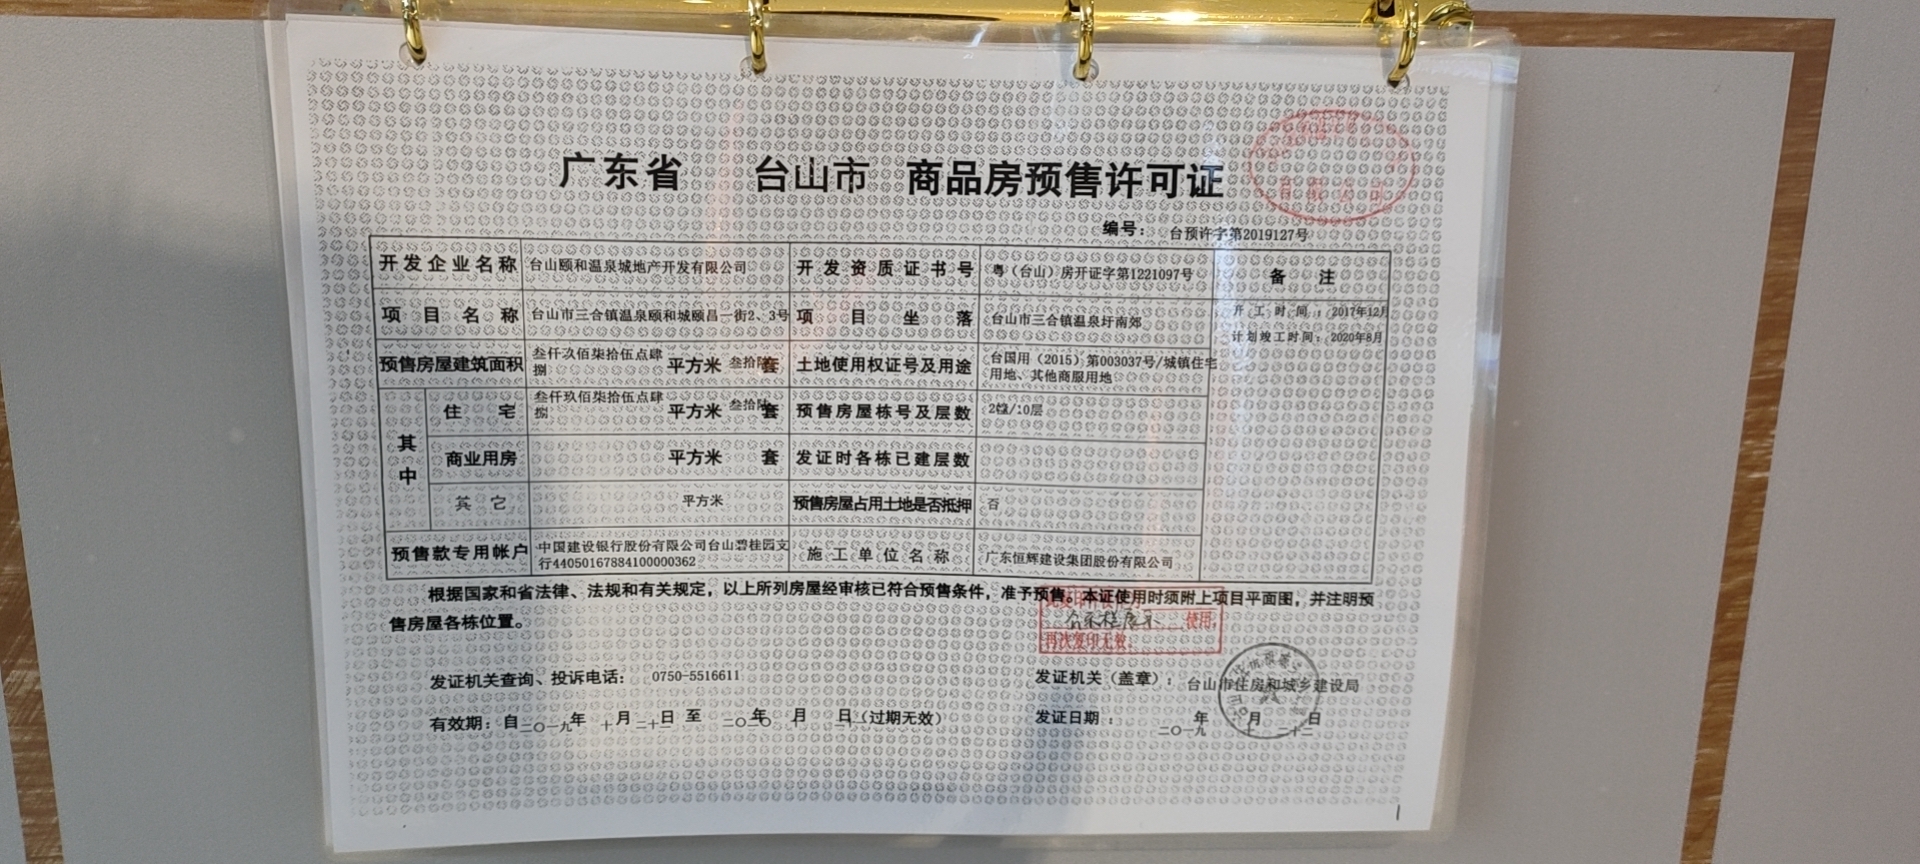 广东省 台山市 商品房预售许可证
有限公司
编号： 台预许字第2019127号
开发企业名称 台山颐和温泉城地产开发有限公司 开发资质证书号 粤（台山）房开证字第1221097号 备注
项目名称 台山市三合镇温泉颐和城颐昌一街2、3号 项目坐落 台山市三合镇温泉圩南郊
开工时间：2017年12月
计划竣工时间：2020年8月
预售房屋建筑面积 叁仟玖佰柒拾伍点肆
捌 平方米 叁拾 套 土地使用权证号及用途 台国用（2015）第003037号/城镇住宅
用地、其他商服用地
其中
住宅 叁仟玖佰柒拾伍点肆
捌 平方米 叁拾 套 预售房屋栋号及层数 2幢/10层
商业用房 平方米 套 发证时各栋已建层数
其它 平方米 预售房屋占用土地是否抵押 否
预售款专用帐户 中国建设银行股份有限公司台山碧桂园支
行44050167884100000362 施工单位名称 广东恒辉建设集团股份有限公司
根据国家和省法律、法规和有关规定，以上所列房屋经审核已符合预售条件，准予预售。本证使用时须附上项目平面图，并注明预
售房屋各栋位置。
使用，
再次复印无效。
发证机关查询、投诉电话： 0750-5516611 发证机关（盖章）： 台山市住房和城乡建设局
有效期：自二〇一九年十月二十二日至 二〇二〇年十月 日（过期无效） 发证日期： 二〇一九年十月二十二日